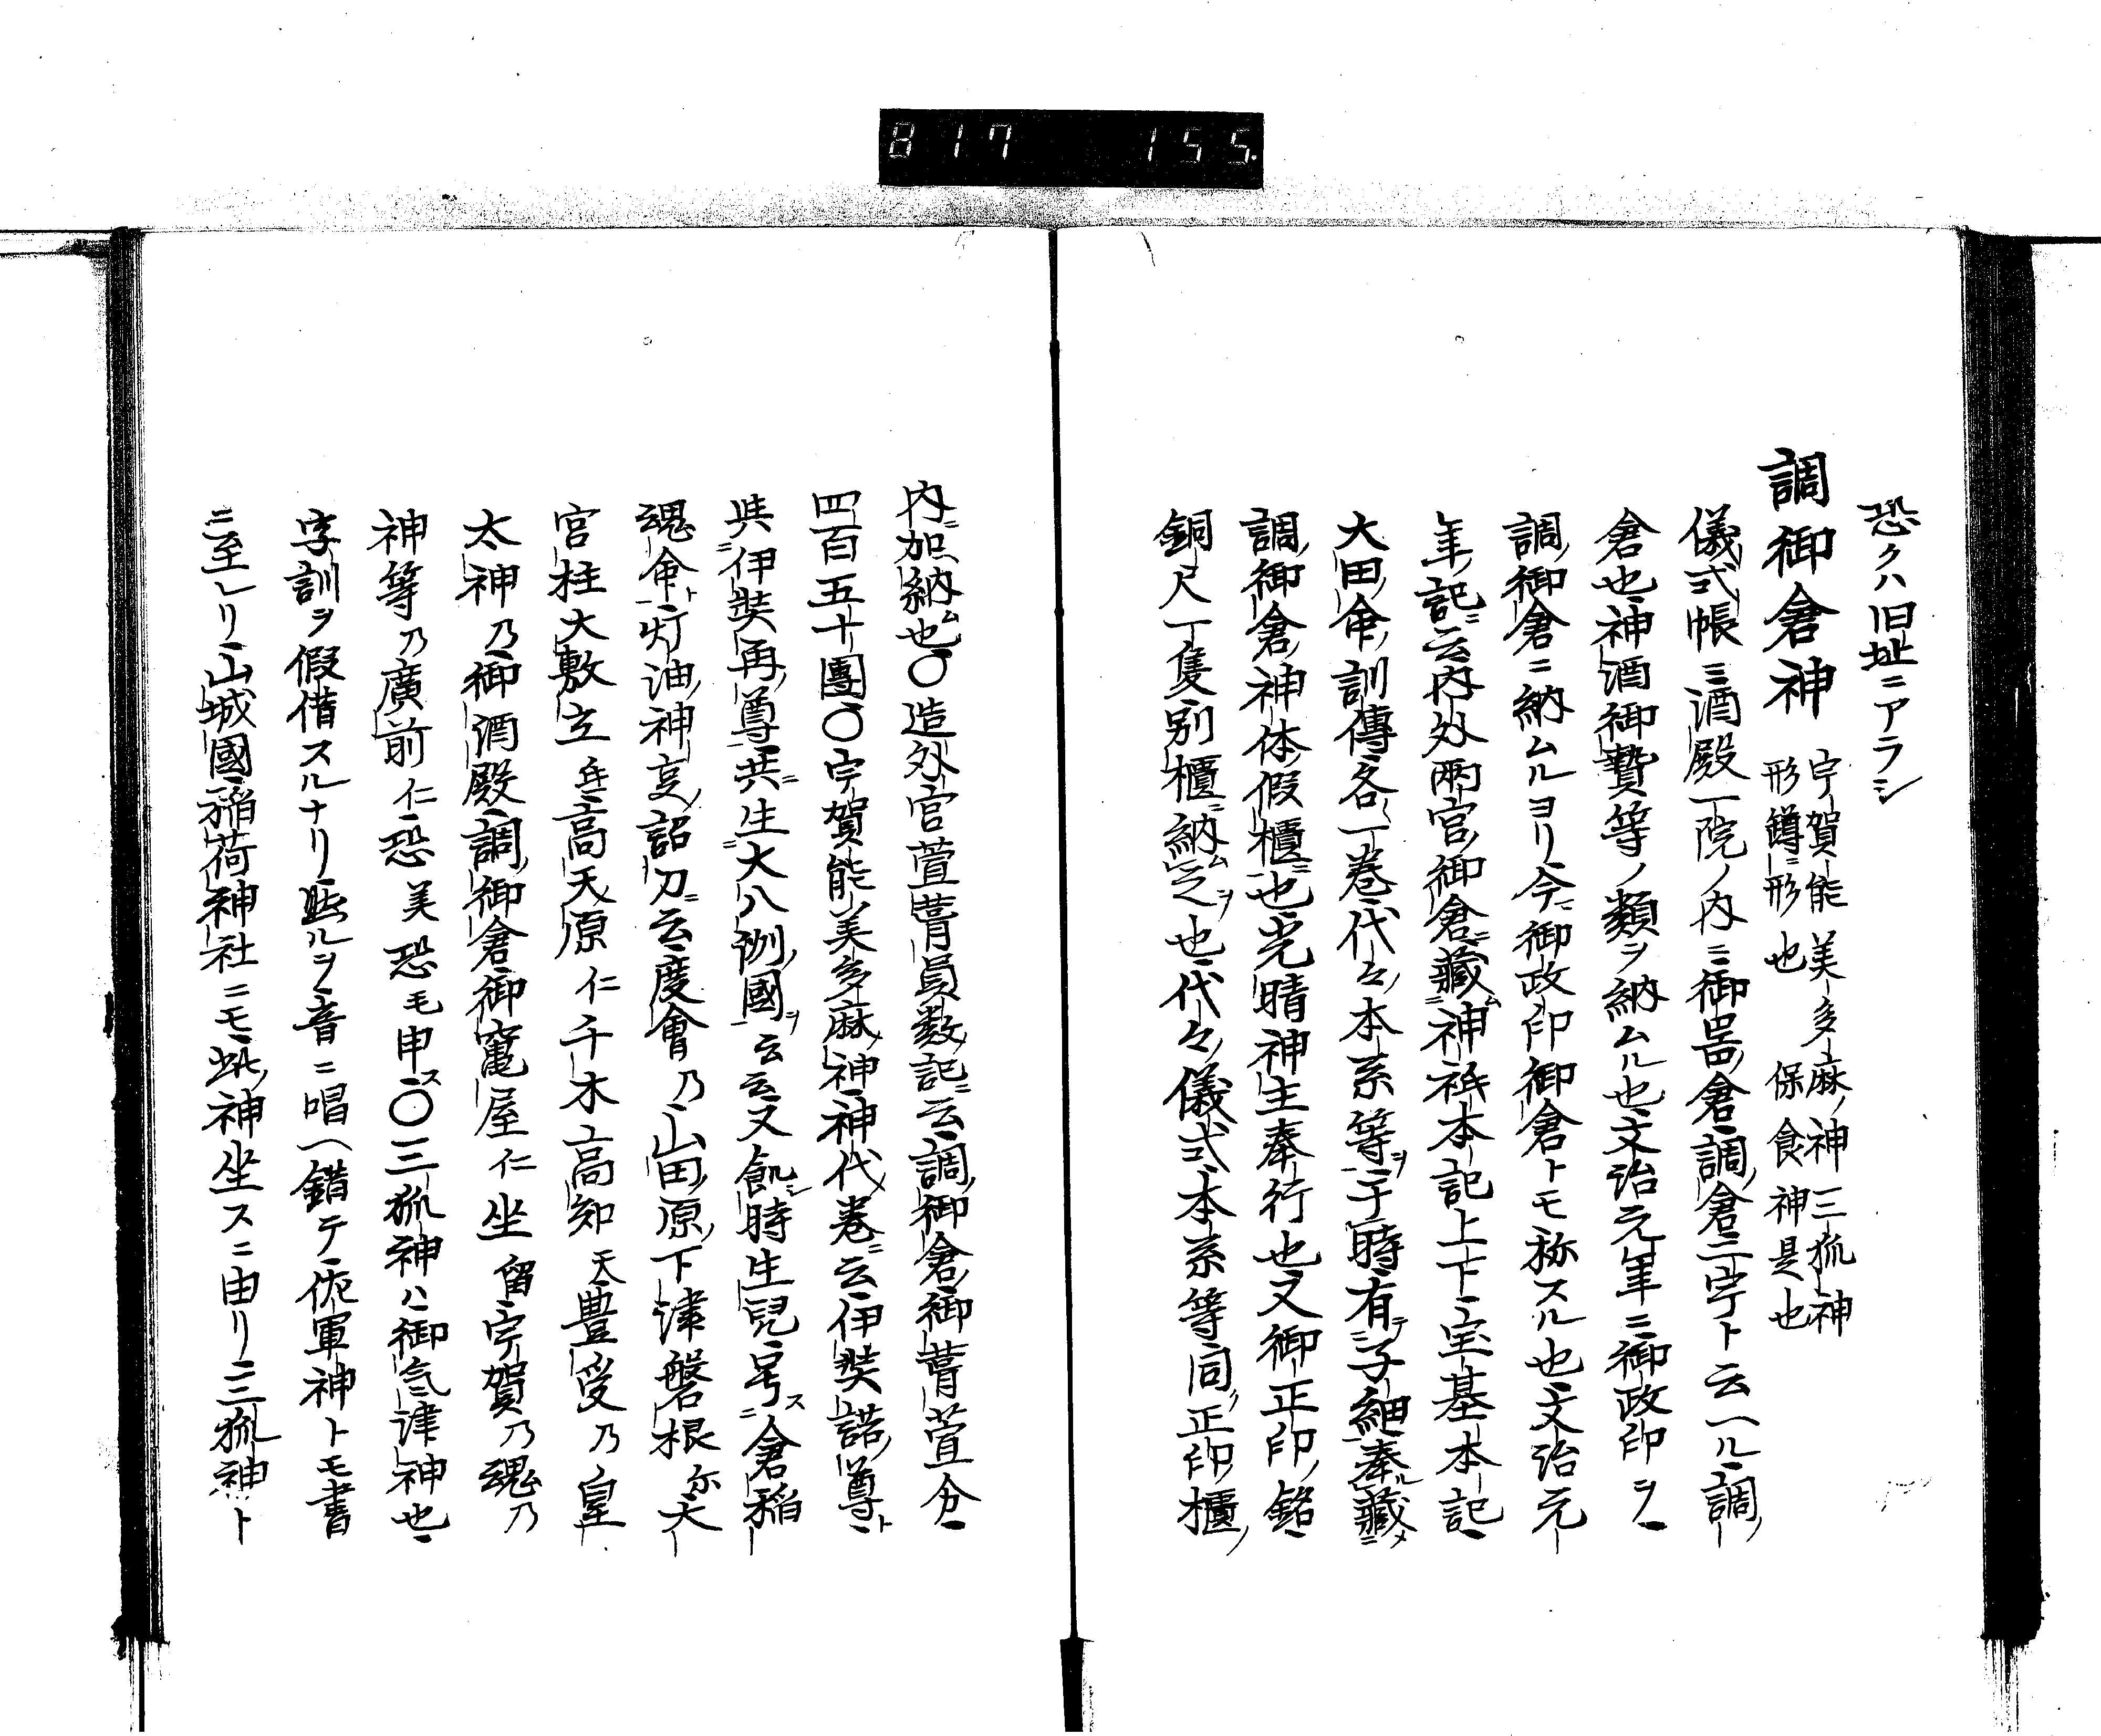 817 155.
恐クハ旧址ニアラシ
調御倉神 宇賀能美多麻ノ神三狐神
形鐏ニ形也 保食神是也
儀式帳ニ酒殿一院ノ内ニ御器倉調倉二宇ト云ヘル調ノ
倉也神酒御贄等ノ類ヲ納ムル也文治元年ニ御政印ヲ
調ノ御倉ニ納ムルヨリ今ニ御政印御倉トモ称スル也文治元
年ノ記ニ云内外兩宮ノ御倉ニ藏ム神祇本記上下宝基本記
大田ノ命ノ訓傳各〻一巻代々ノ本系等ヲ于時有テ子細奉ル藏メ
調ノ御倉ノ神体假櫃ニ也光晴神主奉行也又御正印ノ銘
銅尺一隻別櫃ニ納ム之ヲ也代々ノ儀式本系等同ク正印ノ櫃ノ
内ニ加ヘ納ム也〇造外宮萱葺員数記ニ云調ノ御倉ノ御葺萱分
四百五十團〇宇賀能美多麻ノ神神代ノ巻ニ云伊弉諾ノ尊ト
與伊弉冉ノ尊共ニ生大八洲ノ國ヲ云云又飢シ時生兒号ス倉稲
魂ノ命ト灯油ノ神㕝ノ詔刀ニ云度會乃山田ノ原ノ下津磐根尓大
宮柱大敷立弖高天原仁千木高知天豊受乃皇
太神乃御酒殿調ノ御倉御竃屋仁坐留宇賀乃魂乃
神等乃廣前仁恐美恐毛申ス〇三狐神ハ御気津神也
字訓ヲ假借スルナリ然ルヲ音ニ唱ヘ錯テ佐軍神トモ書
ニ至レリ山城國稲荷神社ニモ此ノ神坐スニ由リ三狐神ト